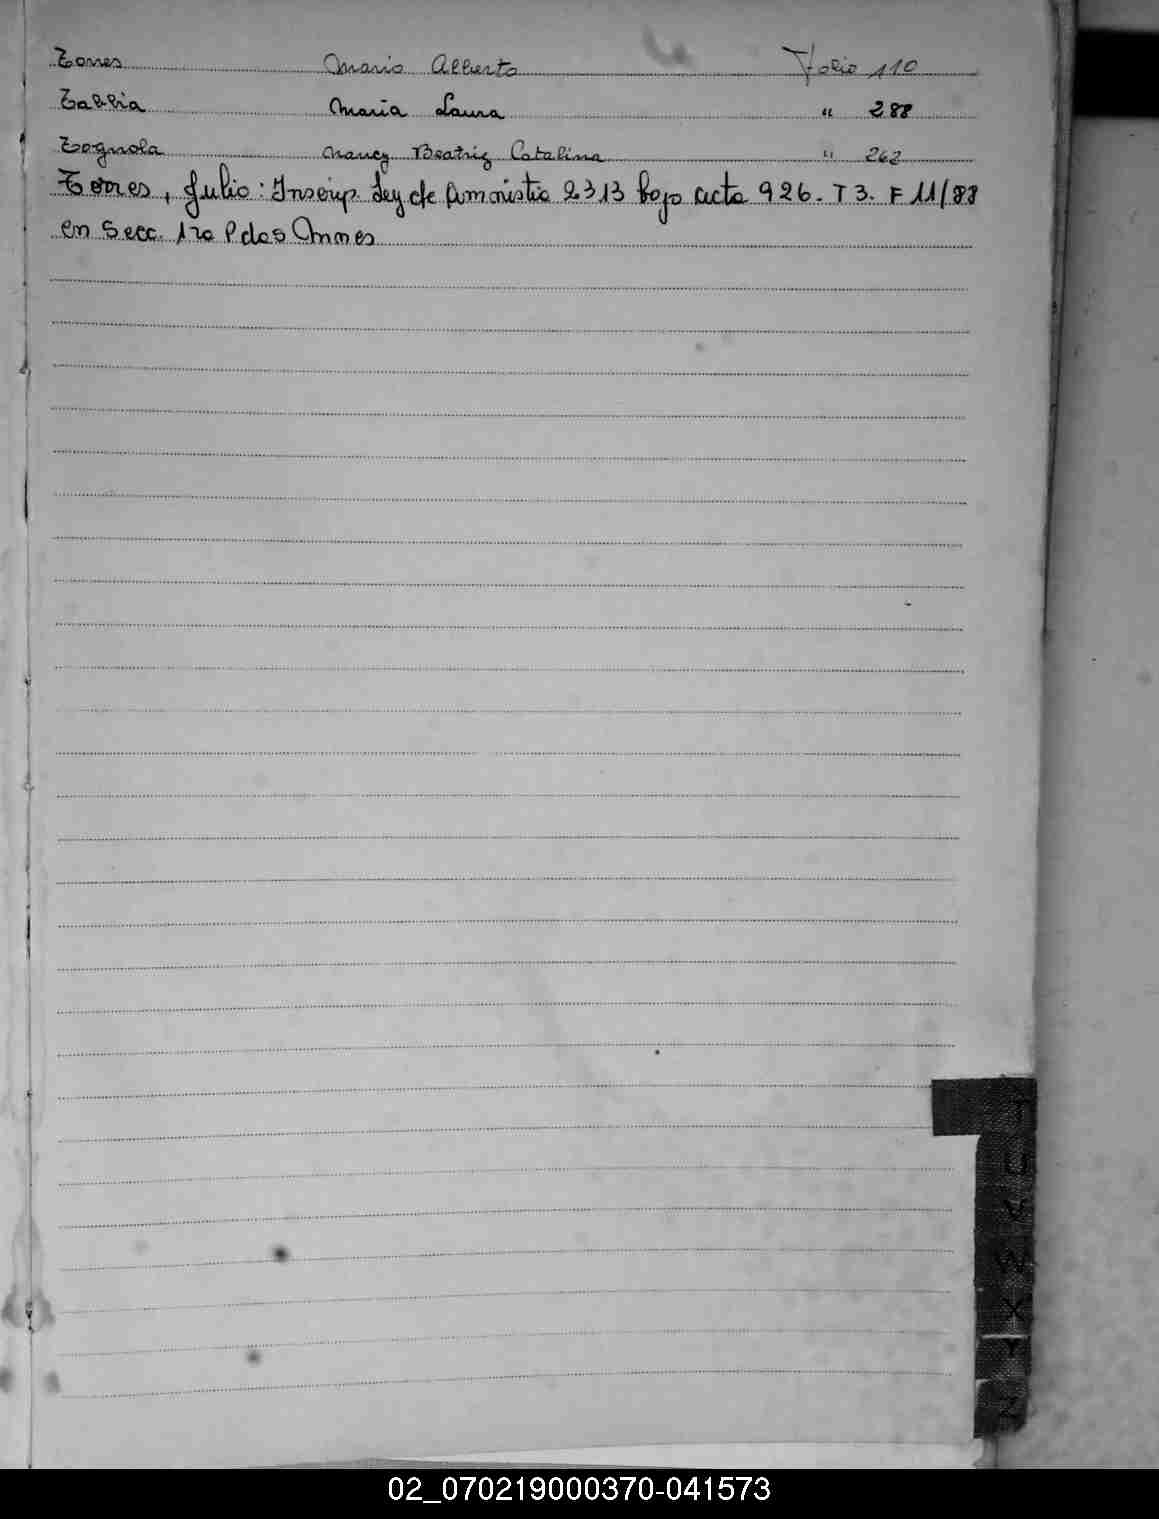 Torres Mario Alberto Folio 110
Tabbia Maria Laura " 288
Tognola Nancy Beatriz Catalina " 262
Torres, Julio: Inscrip. Ley de Amnistia 2313 bajo acta 926. T 3. F 11/88
en Secc. 1ra P dos
T
U
V
W
X
Y
Z
02_070219000370-041573